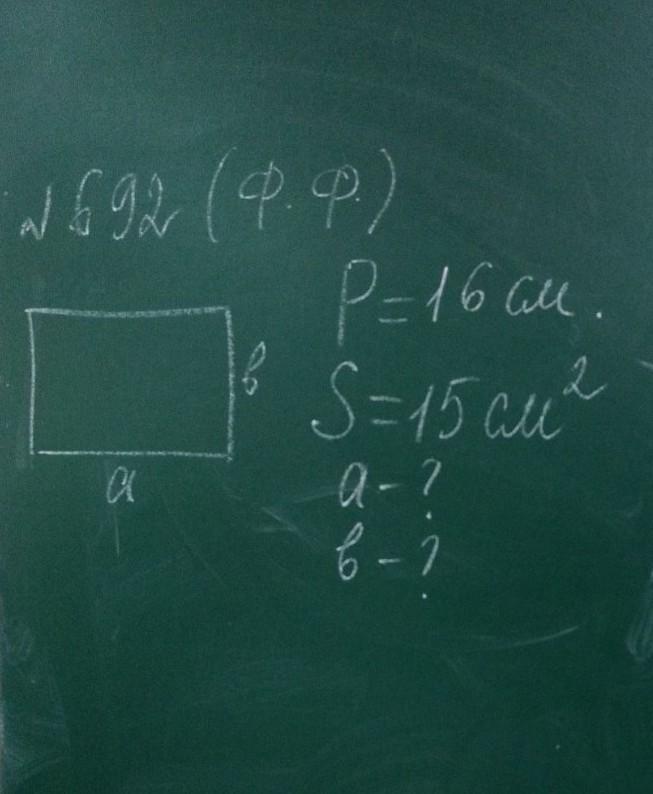 №692 (Ф.Ф.)
P=16 см.
в
S=15 см²
а
а-?
в-?